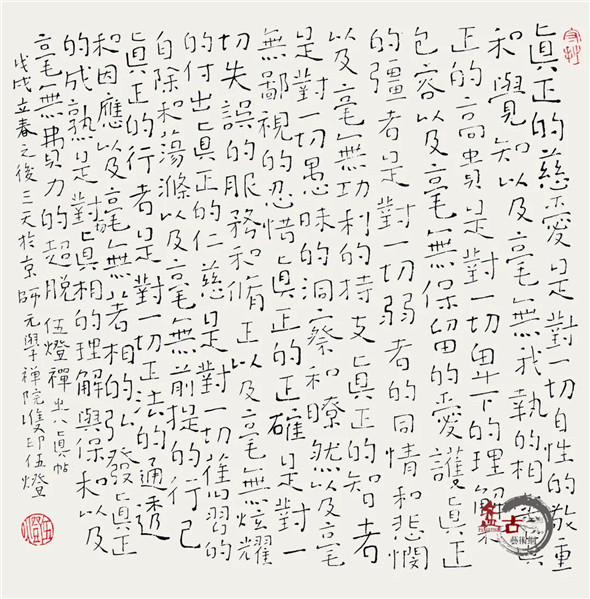 眞正的慈愛是對一切自性的敬重
和覺知以及毫無我執的相眞
正的高貴是對一切卑下的理解
包容以及毫無保留的愛護眞正
的彊者是對一切弱者的同情和悲憫
以及毫無功利的持支眞正的智者
是對一切愚昧的洞察和瞭然以及毫
無鄙視的忍惜眞正的正確是對一
切失誤的服務和脩正以及毫無炫耀
的付出眞正的仁慈是對一切習的
自除和蕩滌以及毫無前提的行己
眞正的行者是對一切正法的通透
和因應以及毫無著相的弘發眞正
的成熟是對眞相的理解與保和以及
毫無費力的超脫 伍燈禪出八眞帖
戊戌立春之後三天於京師元學禪院雙印伍燈
盤古
藝術網